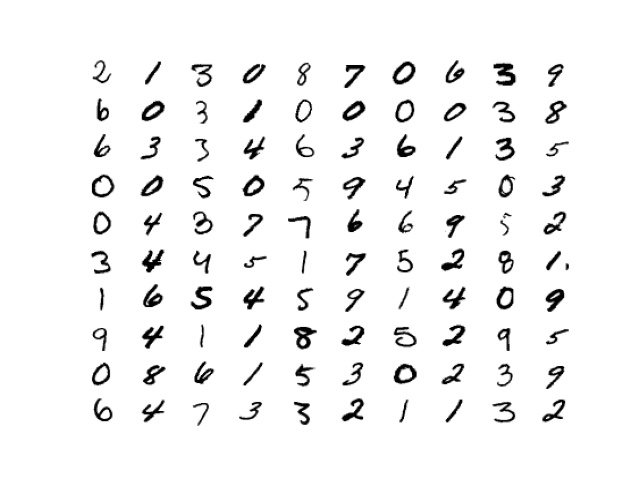 2 1 3 0 8 7 0 6 3 9
6 0 3 1 0 0 0 0 3 8
6 3 3 4 6 3 6 1 3 5
0 0 5 0 5 9 4 5 0 3
0 4 3 7 7 6 6 9 5 2
3 4 4 5 1 7 5 2 8 1.
1 6 5 4 5 9 1 4 0 9
9 4 1 1 8 2 5 2 9 5
0 8 6 1 5 3 0 2 3 9
6 4 7 3 3 2 1 1 3 2